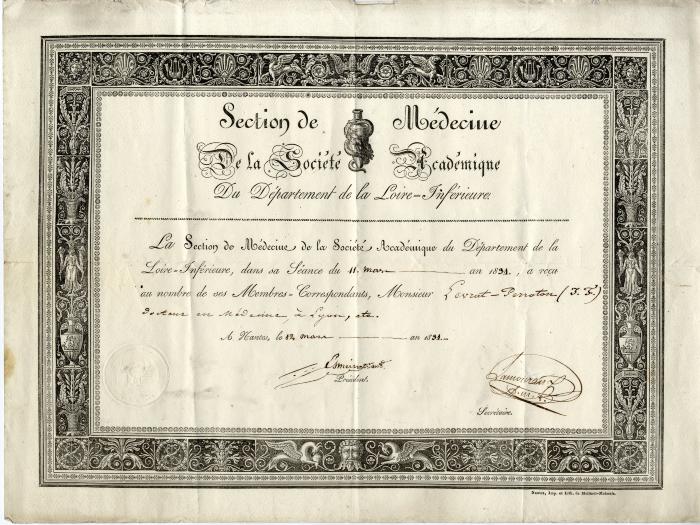 Section de Médecine
De la Société Académique
Du Département de la Loire-Inférieure.
La Section de Médecine de la Société Académique du Département de la
Loire-Inférieure, dans sa Séance du 11. mars an 1831, a reçu
au nombre de ses Membres-Correspondants, Monsieur Levrat-Perroton (F. F.)
docteur en Médecine à Lyon, etc.
A Nantes, le 12 mars an 1831.
Président.
Secrétaire.
Nantes, Imp. et Lith. de